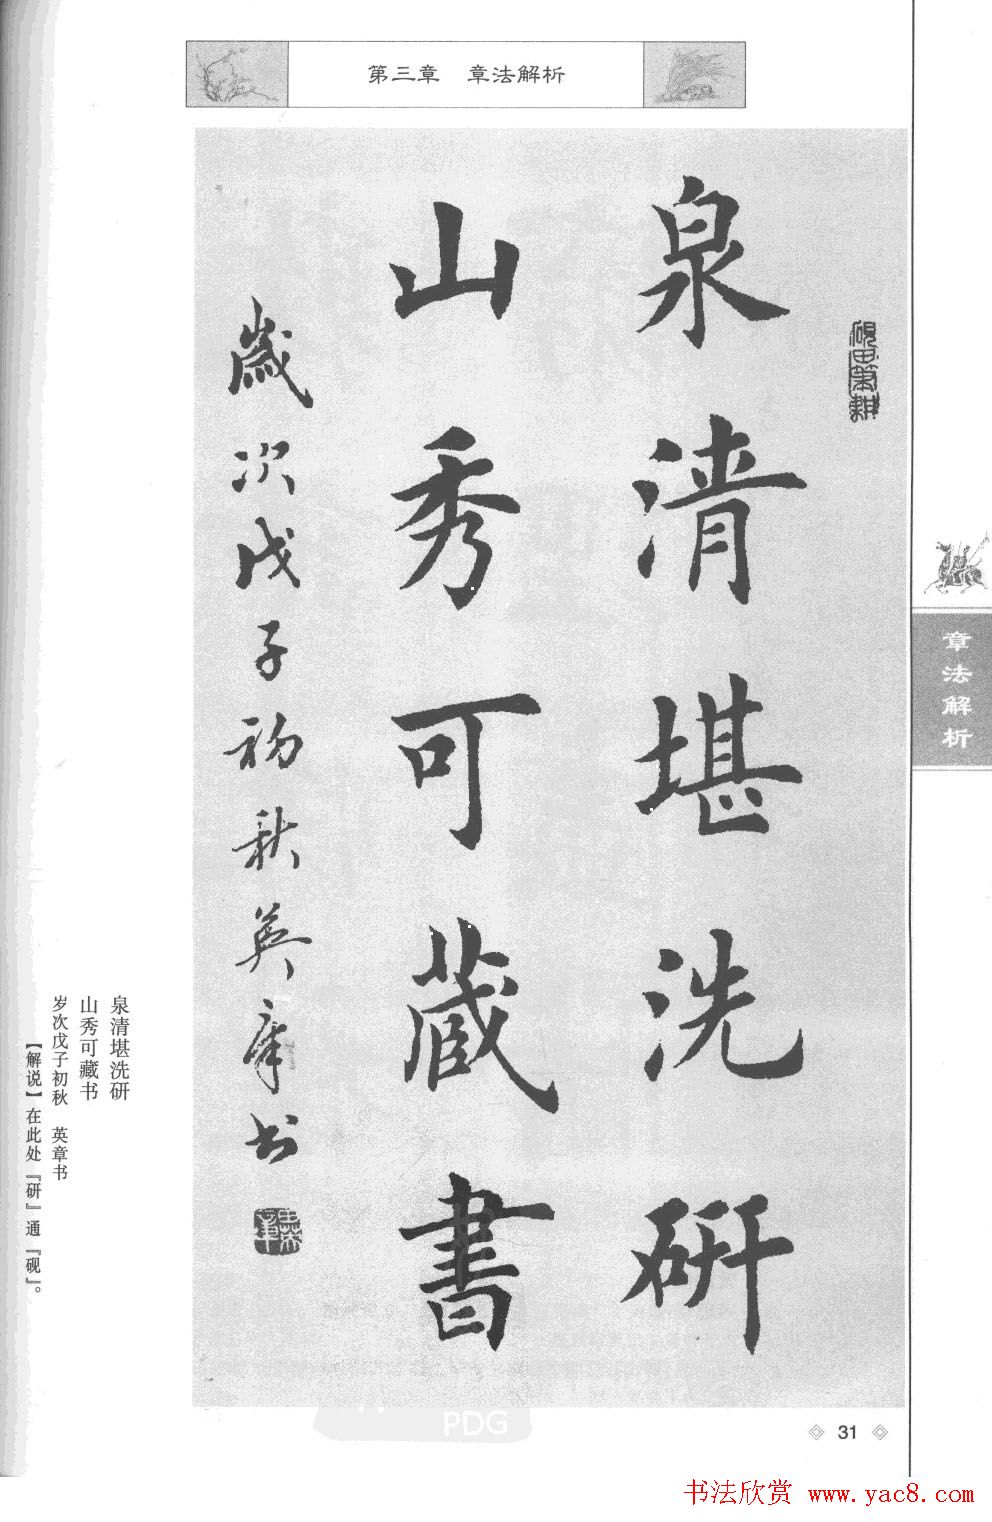 第三章 章法解析
泉清堪洗研
山秀可藏書
歲次戊子初秋英章书
砚田笔耕
章法解析
泉清堪洗研
山秀可藏书
岁次戊子初秋 英章书
【解说】在此处『研』通『砚』。
31
PDG
书法欣赏 www.yac8.com